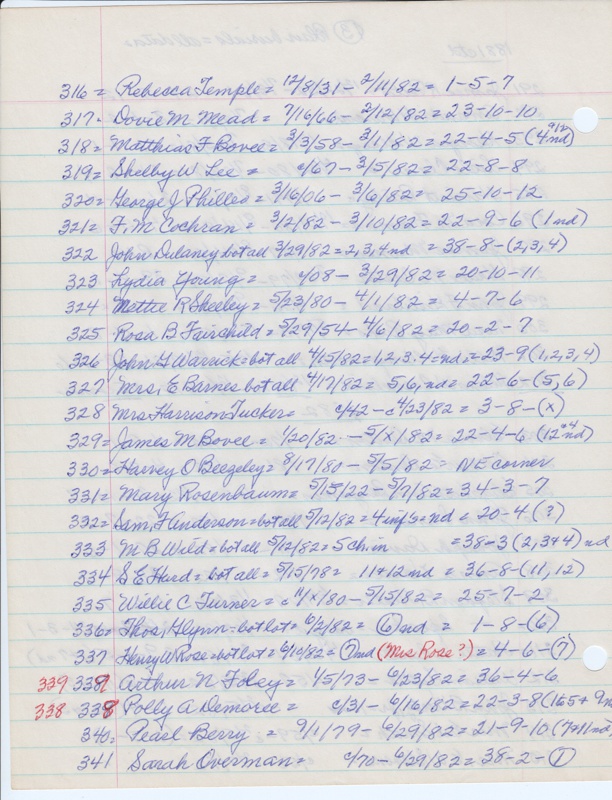 316 = Rebecca Temple = 12/8/31 - 2/11/82 = 1-5-7
317 - Dovie M Mead = 7/16/66 - 2/12/82 = 23-10-10
318 = Matthias F Bovee = 3/3/58 - 3/1/82 = 22-4-5 (4 nd)
319 = Shelby W Lee = c/67 - 3/5/82 = 22-8-8
320 = George J Philleo = 3/16/06 - 3/6/82 = 25-10-12
321 = F. M Cochran = 3/2/82 - 3/10/82 = 22-9-6 (1 nd)
322 John Dulaney bot all 3/29/82 = 2,3,4 nd = 38-8-(2,3,4)
323 Lydia Young = c/08 - 3/29/82 = 20-10-11
324 Mettie R Sheeley = 5/23/80 - 4/1/82 = 4-7-6
325 Rosa B Fairchild = 5/29/54 - 4/6/82 = 20-2-7
326 John G Warrick = bot all 4/15/82 = 1,2,3,4 = nd, = 23-9 (1,2,3,4)
327 Mrs, E Barnes bot all 4/17/82 = 5,6, nd = 22-6-(5,6)
328 Mrs Harrison Tucker = c/42 - c 4/23/82 = 3-8-(x)
329 = James M Bovee = 1/20/82 - 5/x/82 = 22-4-6 (12 nd)
330 = Harvey O Beezeley = 8/17/80 - 5/5/82 = NE corner
331 = Mary Rosenbaum = 5/15/22 - 5/7/82 = 34-3-7
332 = Sam, F Anderson = bot all 5/12/82 = 4 inf's = nd = 20-4 (?)
333 M B Wild = bot all 5/12/82 = 5 ch, in = 38-3 (2,3+4) nd
334 S E Hurd = bot all = 5/15/78 = 11+12 nd = 36-8-(11,12)
335 Willie C Turner = c 11/x/80 - 5/15/82 = 25-7-2
336 = Thos, Glynn = bot lot = 6/2/82 = 6 nd = 1-8-(6)
337 Henry W Rose = bot lot = 6/10/82 = 7 nd (Mrs Rose?) = 4-6-7
339 3389 Arthur N Foley = 4/5/73 - 6/23/82 = 36-4-6
338 3398 Polly A Demoree = c/31 - 6/16/82 = 22-3-8 (1&5+9 nd
340 = Pearl Berry = 9/1/79 - 6/29/82 = 21-9-10 (7+11 nd)
341 Sarah Overman = c/70 - 6/29/82 = 38-2-1